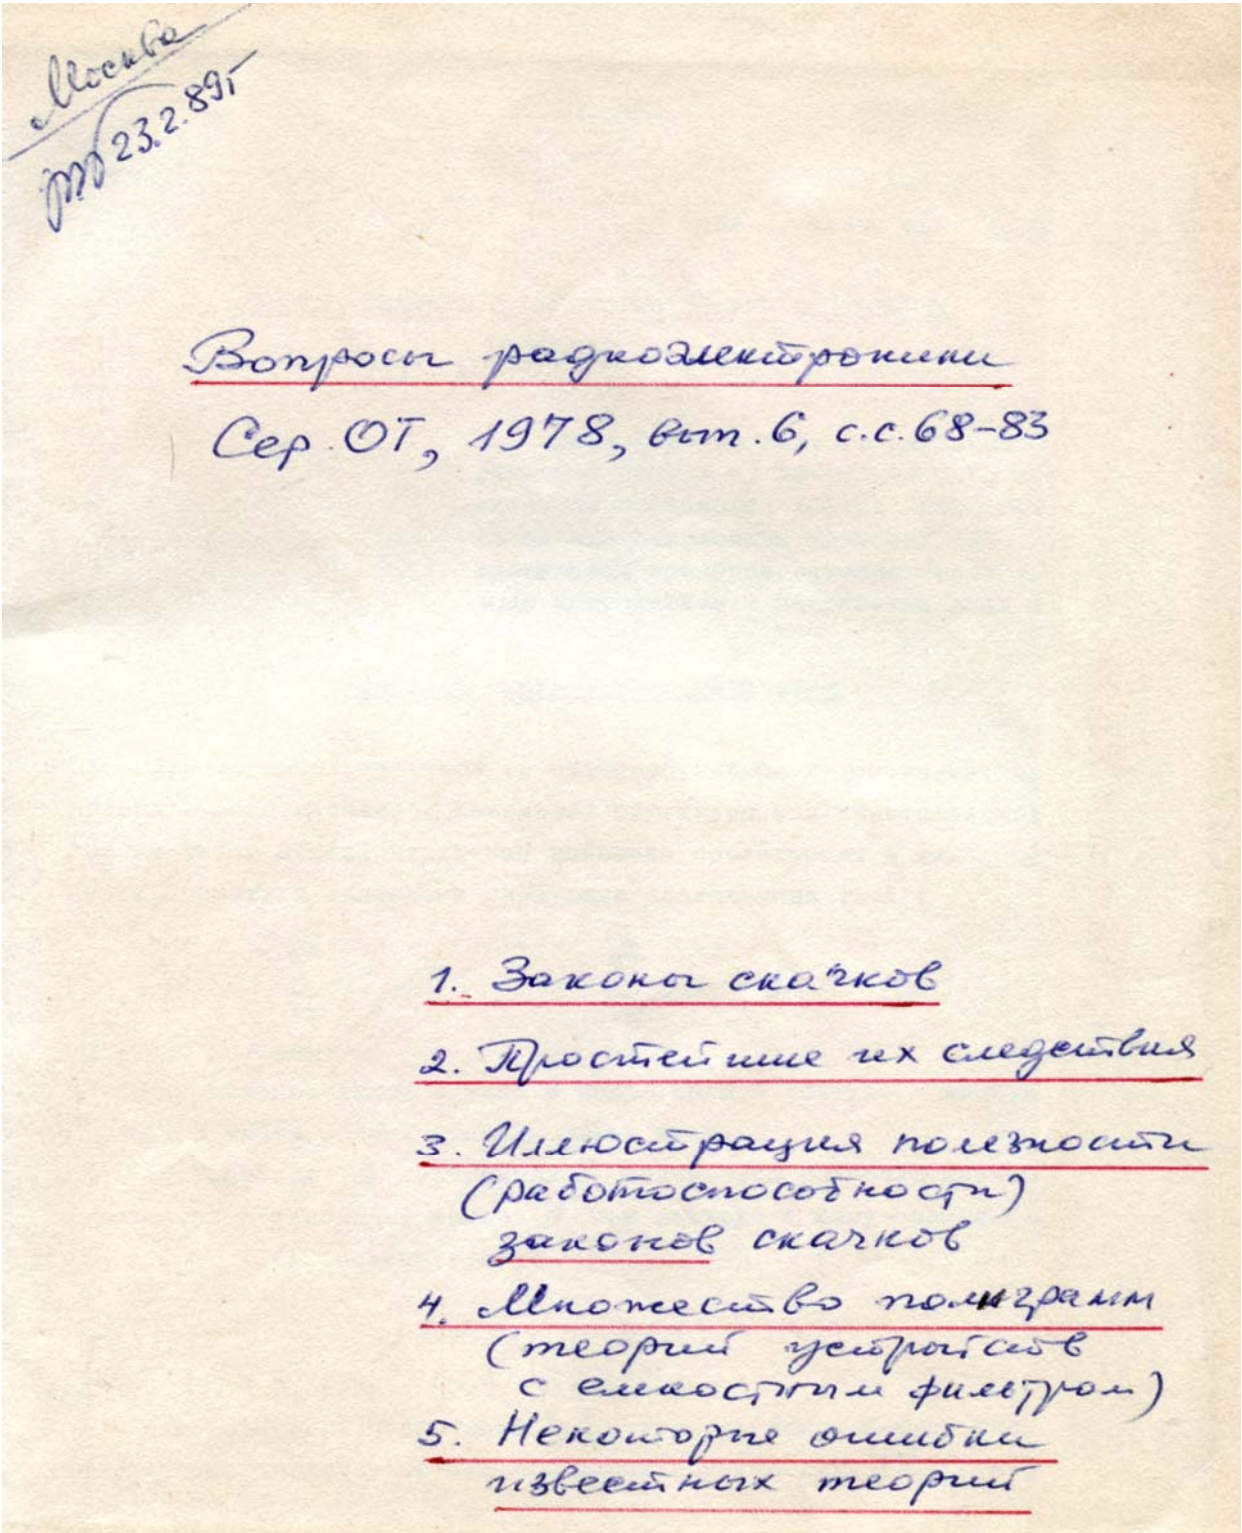 Москва
23.2.89г
Вопросы радиоэлектроники
Сер. ОТ, 1978, вып. 6, с.с. 68-83
1. Законы скачков
2. Простейшие их следствия
3. Иллюстрация полезности
(работоспособности)
законов скачков
4. Множество полиграмм
(теорий устройств
с емкостным фильтром)
5. Некоторые ошибки
известных теорий